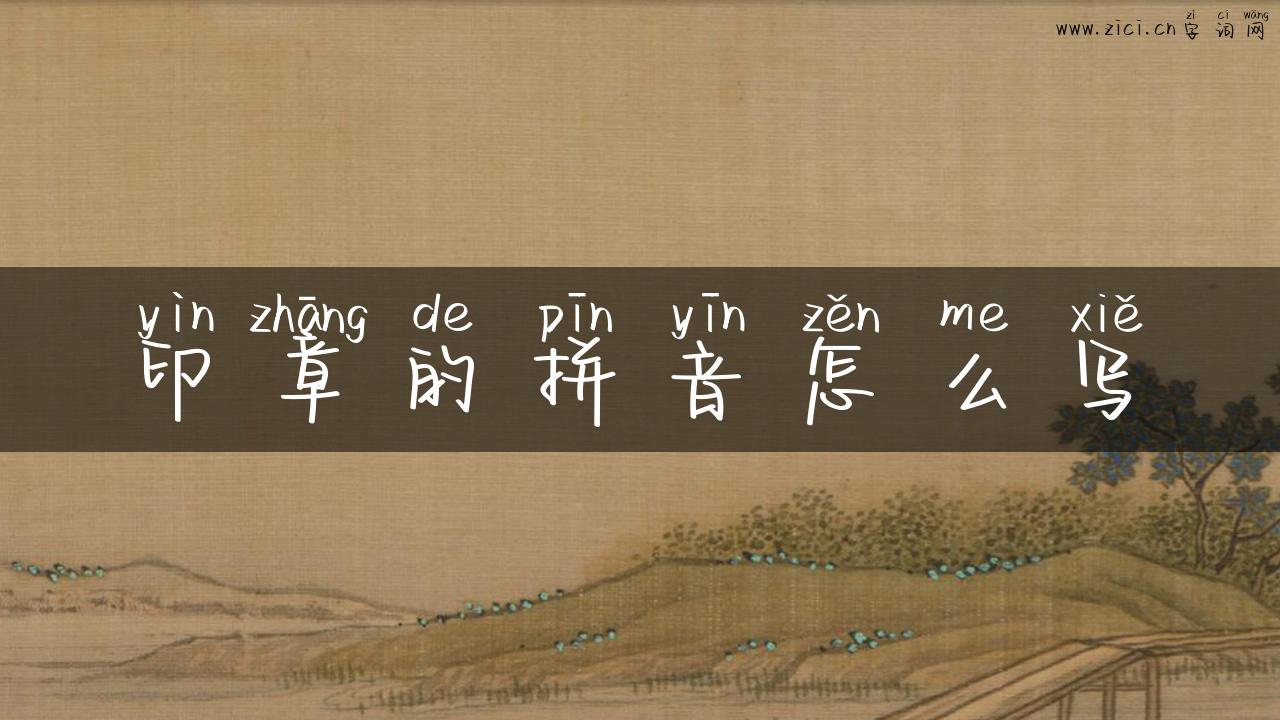 zì cí wǎng
www.zici.cn 字词网
yìn zhāng de pīn yīn zěn me xiě
印章的拼音怎么写